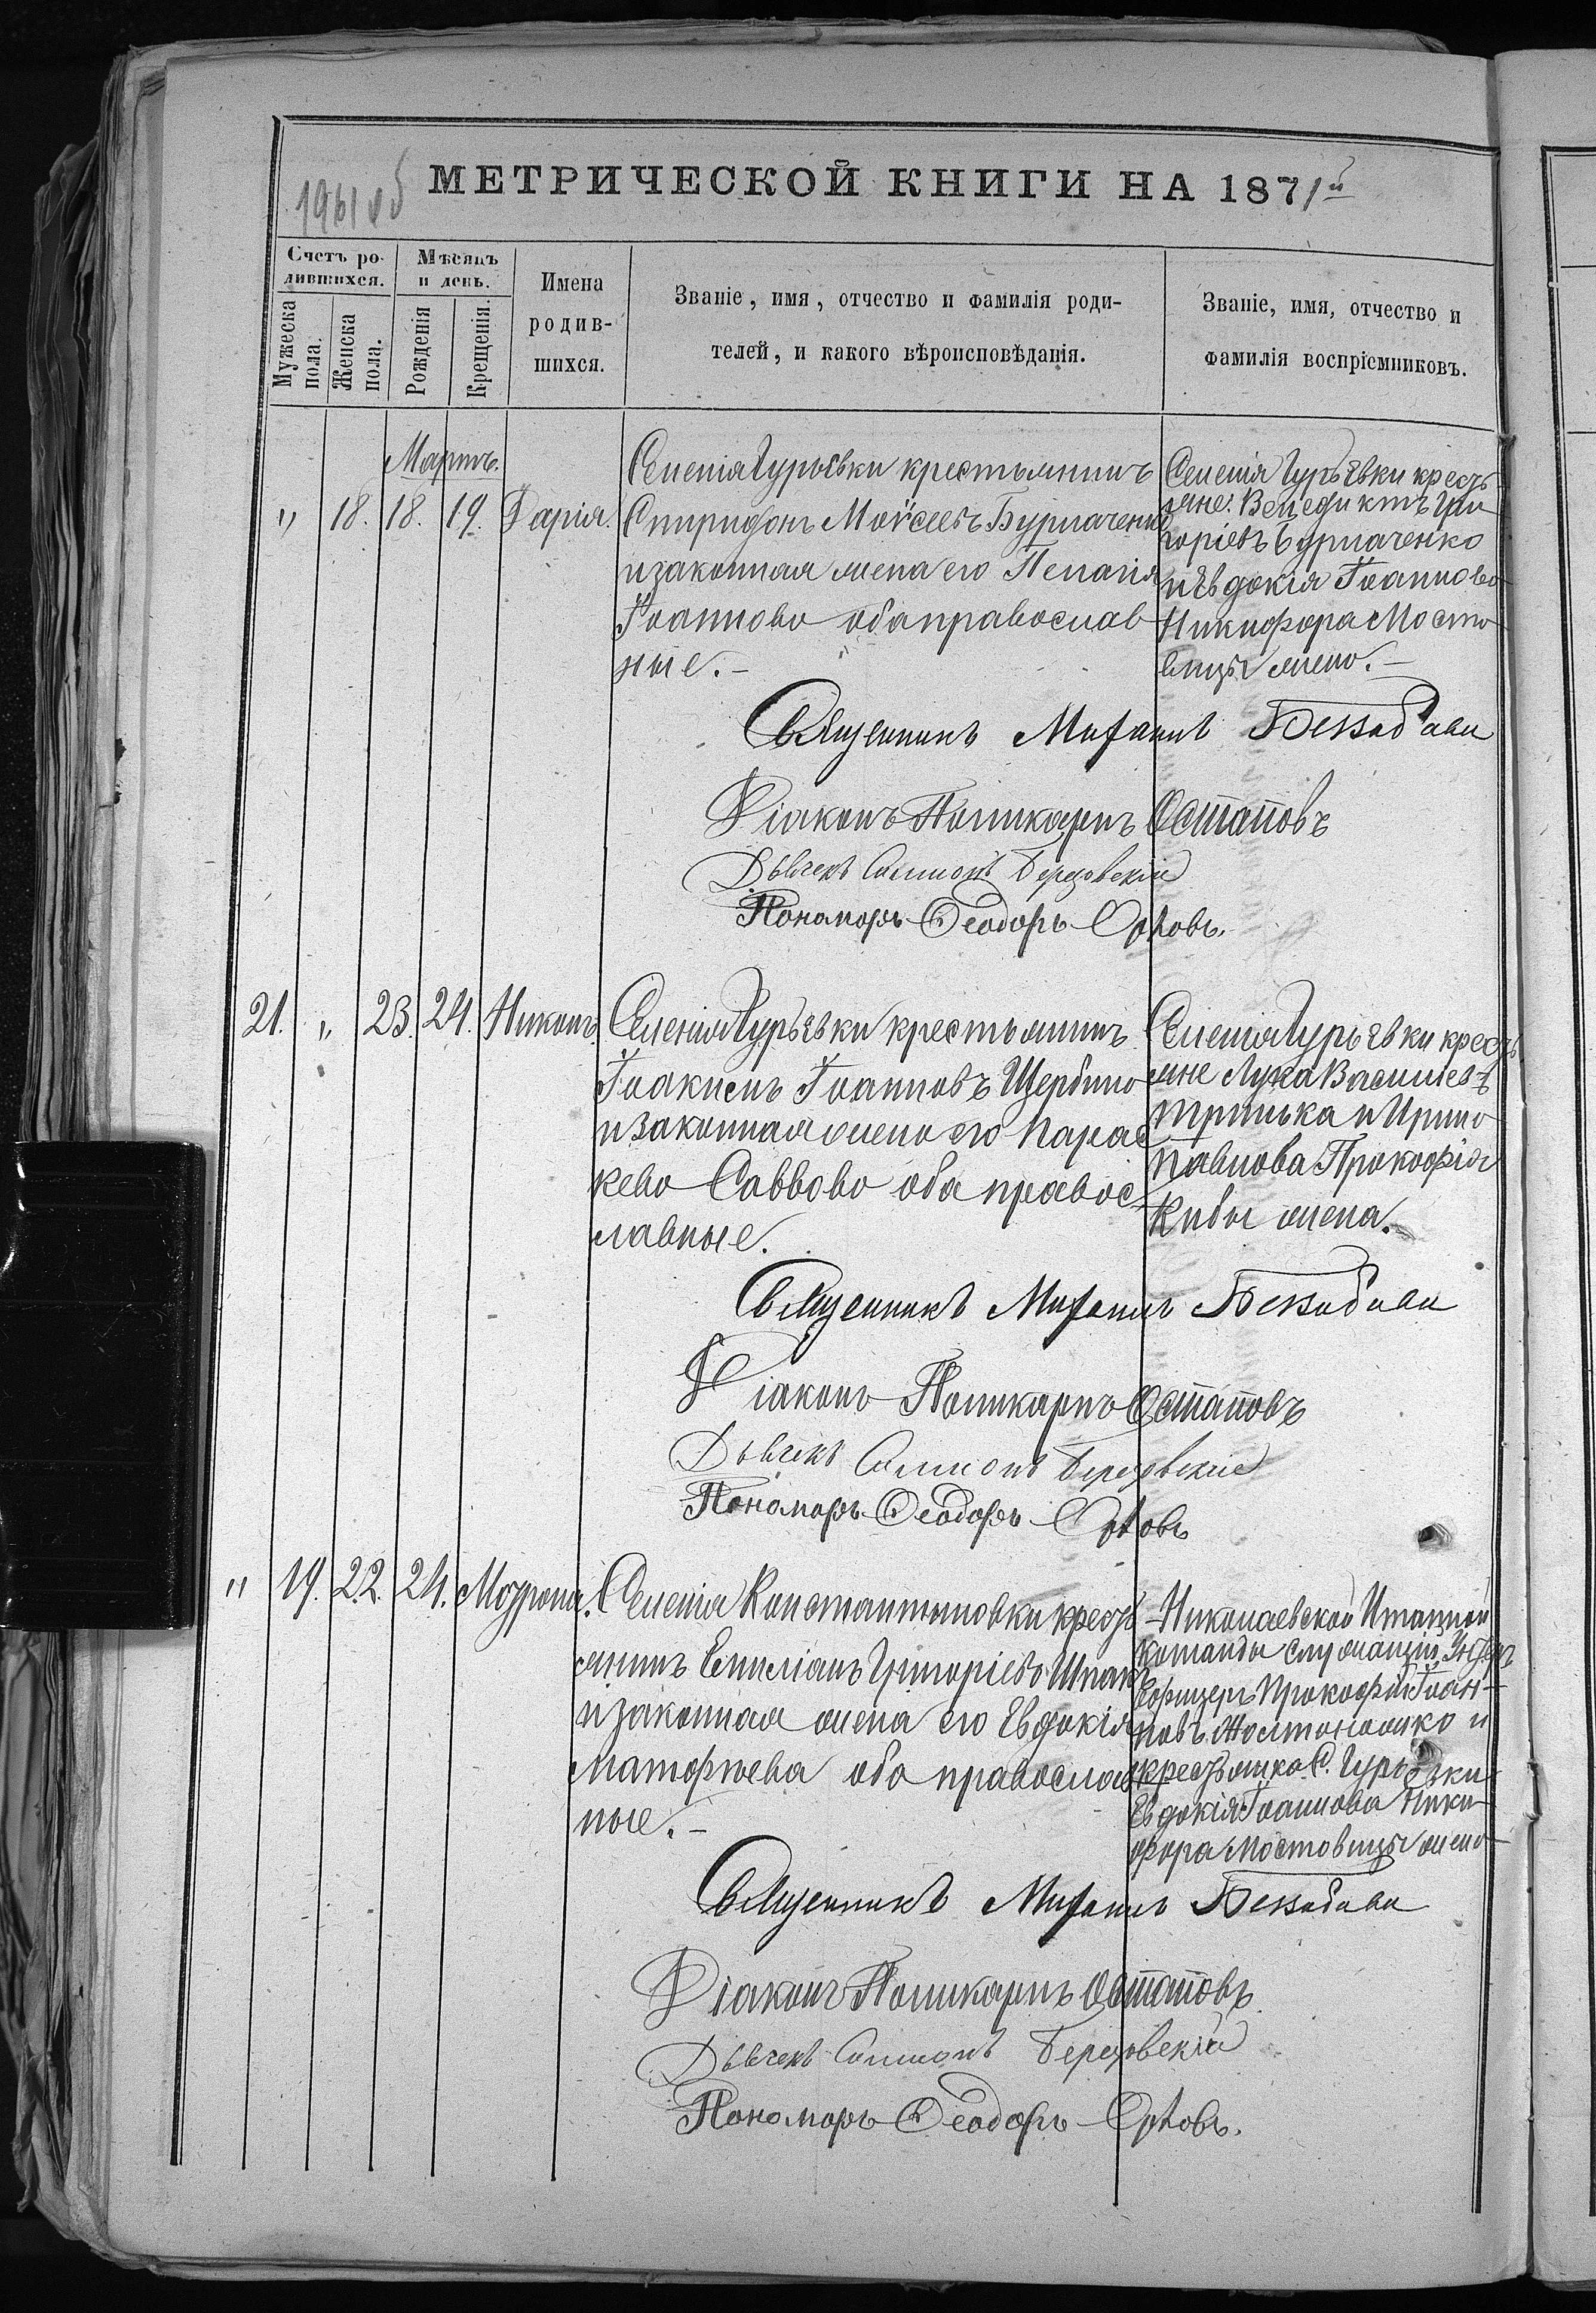 1961 об
МЕТРИЧЕСКОЙ КНИГИ НА 1871й
Счетъ ро-
дившихся.
Мѣсяцъ
и день.
Мужеска
пола.
Женска
пола.
Рожденія
Крещенія.
Имена
родив-
шихся.
Званіе, имя, отчество и фамилія роди-
телей, и какого вѣроисповѣданія.
Званіе, имя, отчество и
фамилія воспріемниковъ.
Мартъ.
" 18. 18. 19. Дарія.
Селенія Гурьевки крестьянинъ
Спиридонъ Моѵсеевъ Бурлаченко
и законная жена его Пелагія
Іоаннова оба православ
ные.-
Селенія Гурьевки кресть-
яне: Венедиктъ Гри
горіевъ Бурлаченко
и Евдокія Іоаннова
Никифора Мосто
вицы жена.-
Священникъ Михаилъ
Діаконъ Поликарпъ Остаповъ
Дьячекъ Симіонъ Березовскій
Пономарь Ѳеодоръ Орловъ.
21. " 23. 24. Никонъ.
Селенія Гурьевки крестьянинъ
Іоакимъ Іоанновъ Щербина
и законная жена его Парас
кева Саввова оба правос
лавные.
Селенія Гурьевки кресть
яне Лука Василіевъ
Тринька и Ирина
Павлова Прокофія
Кибы жена.
Священникъ Михаилъ
Діаконъ Поликарпъ Остаповъ
Дьячекъ Симіонъ Березовскій
Пономарь Ѳеодоръ Орловъ
" 19. 22. 24. Матрона.
Селенія Константиновки кресть
янинъ Емиліанъ Григоріевъ Шпакъ
и законная жена его Евдокія
Матофѣева оба православ
ные.-
Николаевской Этапной
команды служащій Унтеръ
Офицеръ Прокофій Іоан-
новъ Желтоножко и
крестьянка С. Гурьевки
Евдокія Іоаннова Ники-
фора Мостовицы жена
Священникъ Михаилъ
Діаконъ Поликарпъ Остаповъ
Дьячекъ Симіонъ Березовскій
Пономарь Ѳеодоръ Орловъ.